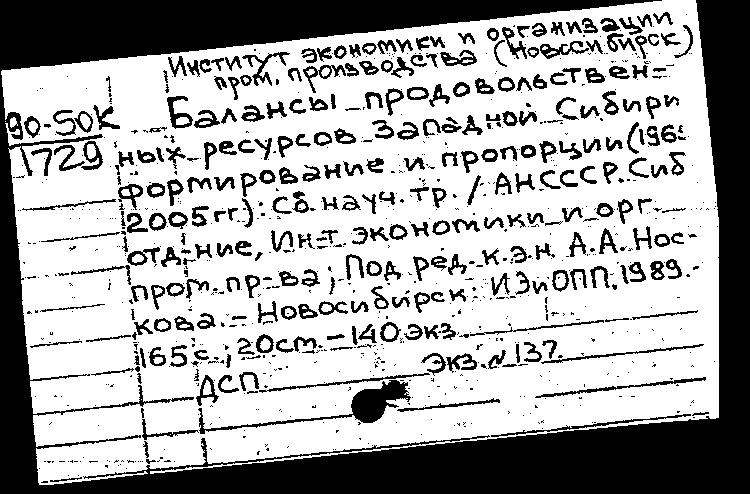 Институт экономики и организации
пром. производства (Новосибирск)
90-50К
1729
Балансы продовольствен-
ных ресурсов Западной Сибири
формирование и пропорции (196
2005 гг.): Сб. науч. тр. / АН СССР. Сиб
отд-ние, Ин-т экономики и орг.
пром. пр-ва; Под ред. к.э.н. А.А. Нос-
кова. - Новосибирск: ИЭиОПП, 1989.-
165 с.; 20 cm. - 140 экз.
Экз. № 137.
ДСП